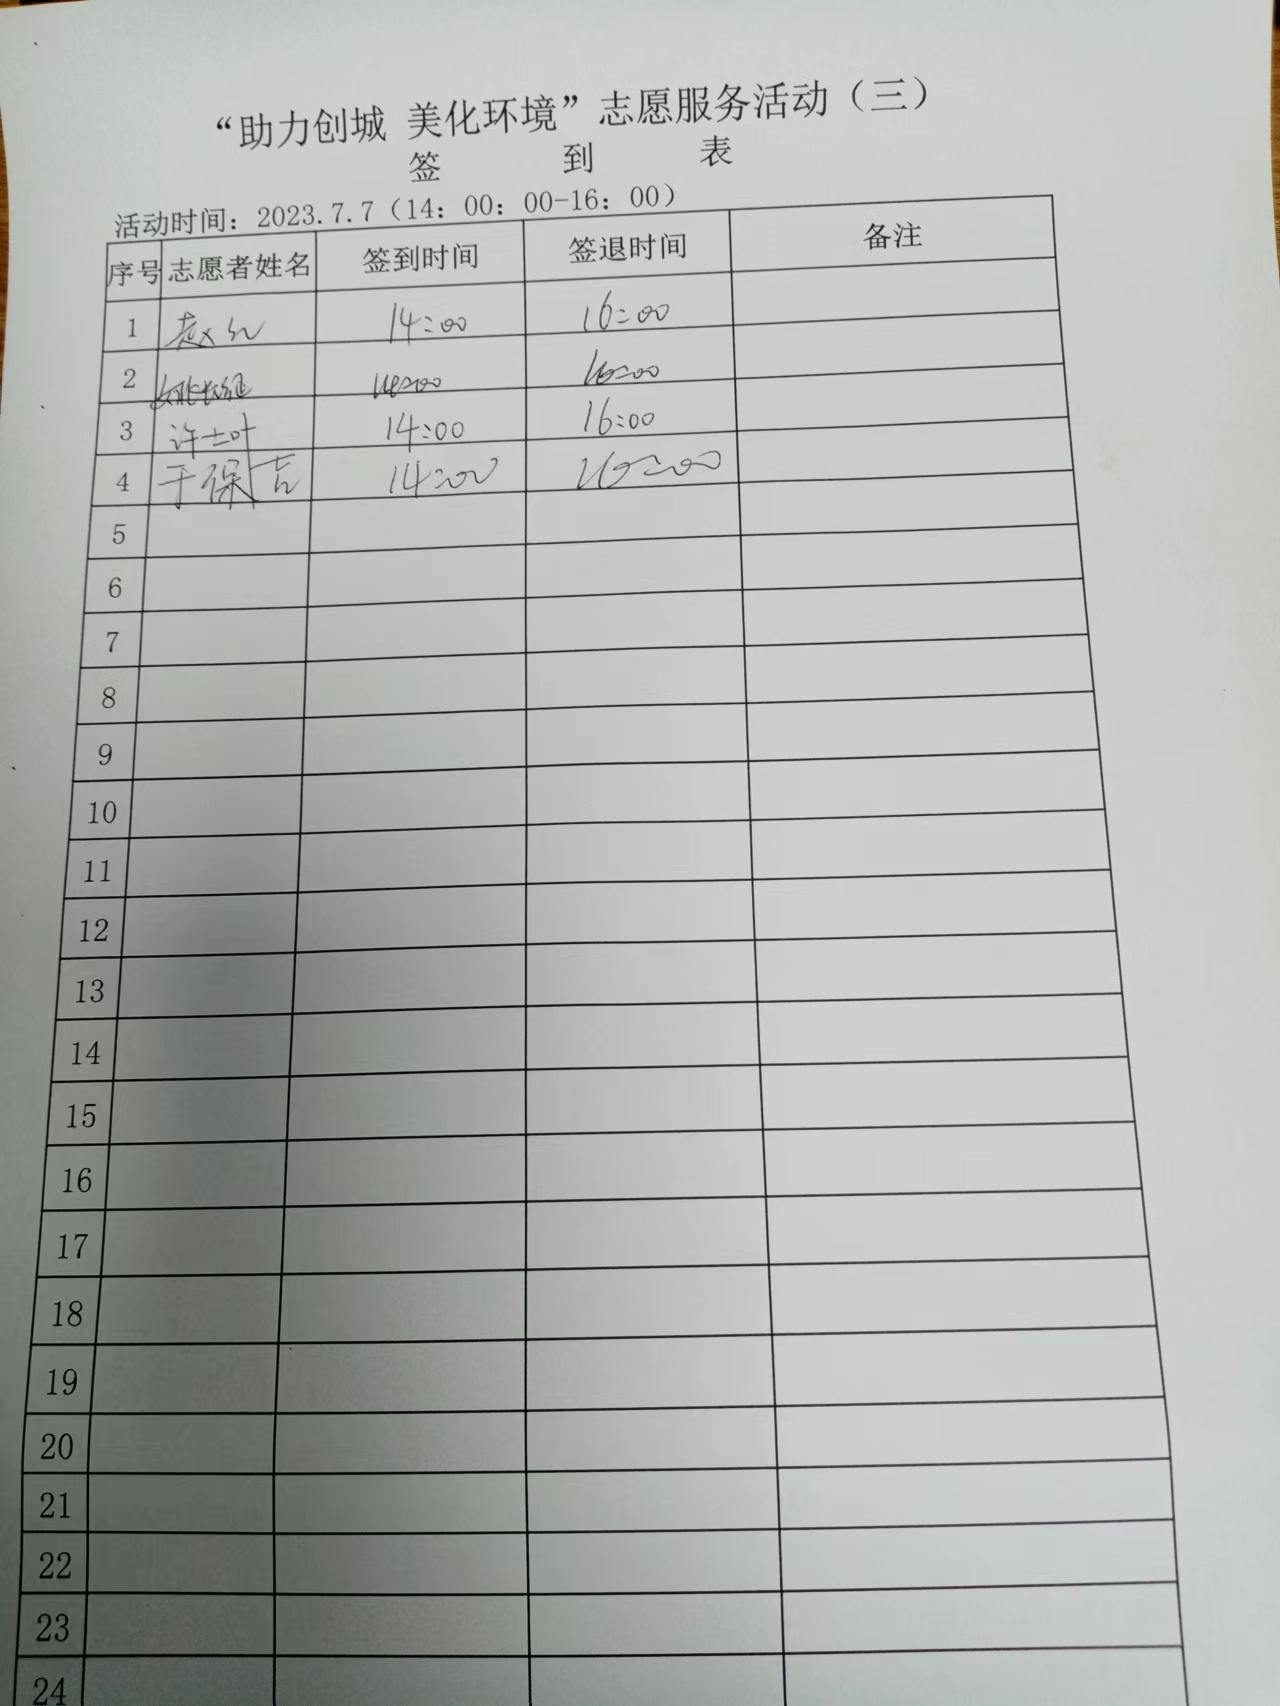 “助力创城 美化环境”志愿服务活动（三）
签 到 表
活动时间：2023.7.7（14：00：00-16：00）
序号 志愿者姓名 签到时间 签退时间 备注
1 赵红 14:00 16:00
2 姚长征 14:00 16:00
3 许士叶 14:00 16:00
4 于保吉 14:00 16:00
5
6
7
8
9
10
11
12
13
14
15
16
17
18
19
20
21
22
23
24